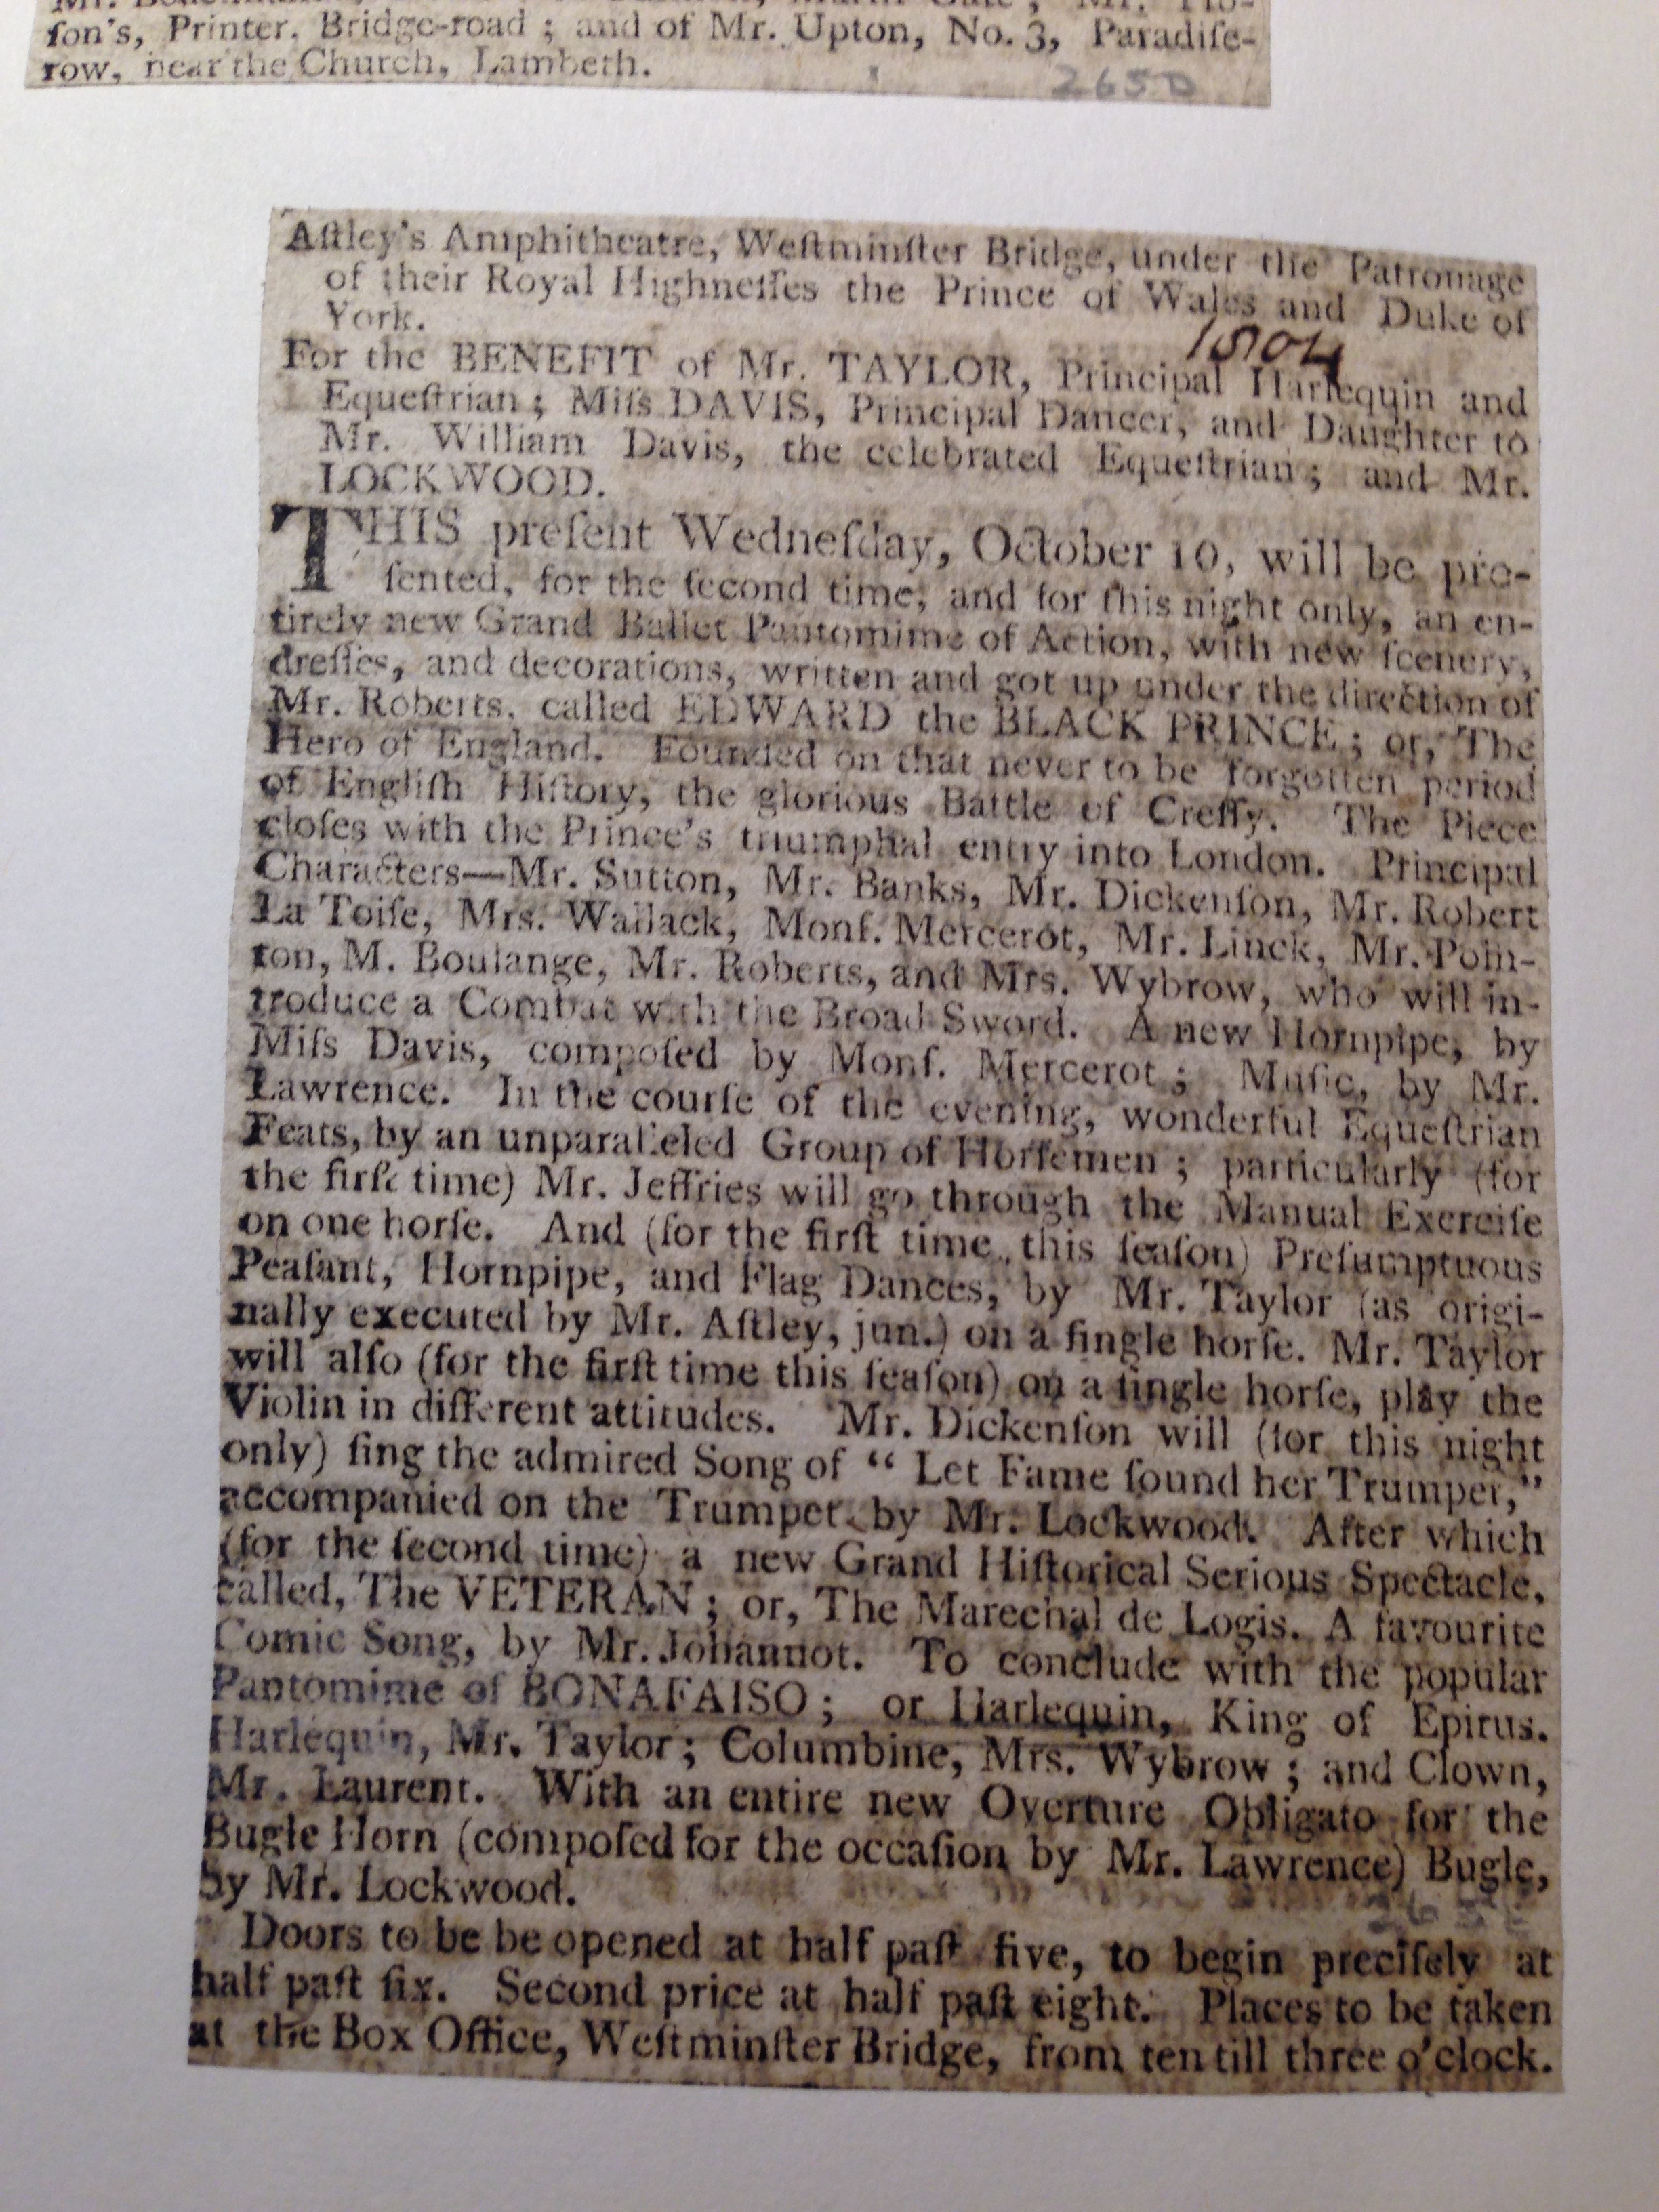 ſon's, Printer, Bridge-road ; and of Mr. Upton, No. 3, Paradiſe-
row, near the Church, Lambeth.
2650
Aſtley's Amphitheatre, Weſtminſter Bridge, under the Patronage
of their Royal Highneſſes the Prince of Wales and Duke of
York.
1804
For the BENEFIT of Mr. TAYLOR, Principal Harlequin and
Equeſtrian ; Miſs DAVIS, Principal Dancer, and Daughter to
Mr. William Davis, the celebrated Equeſtrian ; and Mr.
LOCKWOOD.
THIS preſent Wedneſday, October 10, will be pre-
ſented, for the ſecond time, and for this night only, an en-
tirely new Grand Ballet Pantomime of Action, with new ſcenery,
dreſſes, and decorations, written and got up under the direction of
Mr. Roberts, called EDWARD the BLACK PRINCE ; or, The
Hero of England. Founded on that never to be forgotten period
of Engliſh Hiſtory, the glorious Battle of Creſſy. The Piece
cloſes with the Prince's triumphal entry into London. Principal
Characters—Mr. Sutton, Mr. Banks, Mr. Dickenſon, Mr. Robert
La Toiſe, Mrs. Wallack, Monſ. Mercerot, Mr. Linck, Mr. Poin-
ton, M. Boulange, Mr. Roberts, and Mrs. Wybrow, who will in-
troduce a Combat with the Broad Sword. A new Hornpipe, by
Miſs Davis, compoſed by Monſ. Mercerot ; Muſic, by Mr.
Lawrence. In the courſe of the evening, wonderful Equeſtrian
Feats, by an unparalleled Group of Horſemen ; particularly (for
the firſt time) Mr. Jeffries will go through the Manual Exerciſe
on one horſe. And (for the firſt time this ſeaſon) Preſumptuous
Peaſant, Hornpipe, and Flag Dances, by Mr. Taylor (as origi-
nally executed by Mr. Aſtley, jun.) on a ſingle horſe. Mr. Taylor
will alſo (for the firſt time this ſeaſon) on a ſingle horſe, play the
Violin in different attitudes. Mr. Dickenſon will (for this night
only) ſing the admired Song of “ Let Fame ſound her Trumpet,”
accompanied on the Trumpet by Mr. Lockwood. After which
(for the ſecond time) a new Grand Hiſtorical Serious Spectacle,
called, The VETERAN ; or, The Marechal de Logis. A favourite
Comic Song, by Mr. Johannot. To conclude with the popular
Pantomime of BONAFAISO ; or Harlequin, King of Epirus.
Harlequin, Mr. Taylor ; Columbine, Mrs. Wybrow ; and Clown,
Mr. Laurent. With an entire new Overture Obligato for the
Bugle Horn (compoſed for the occaſion by Mr. Lawrence) Bugle,
by Mr. Lockwood.
Doors to be be opened at half paſt five, to begin preciſely at
half paſt ſix. Second price at half paſt eight. Places to be taken
at the Box Office, Weſtminſter Bridge, from ten till three o'clock.